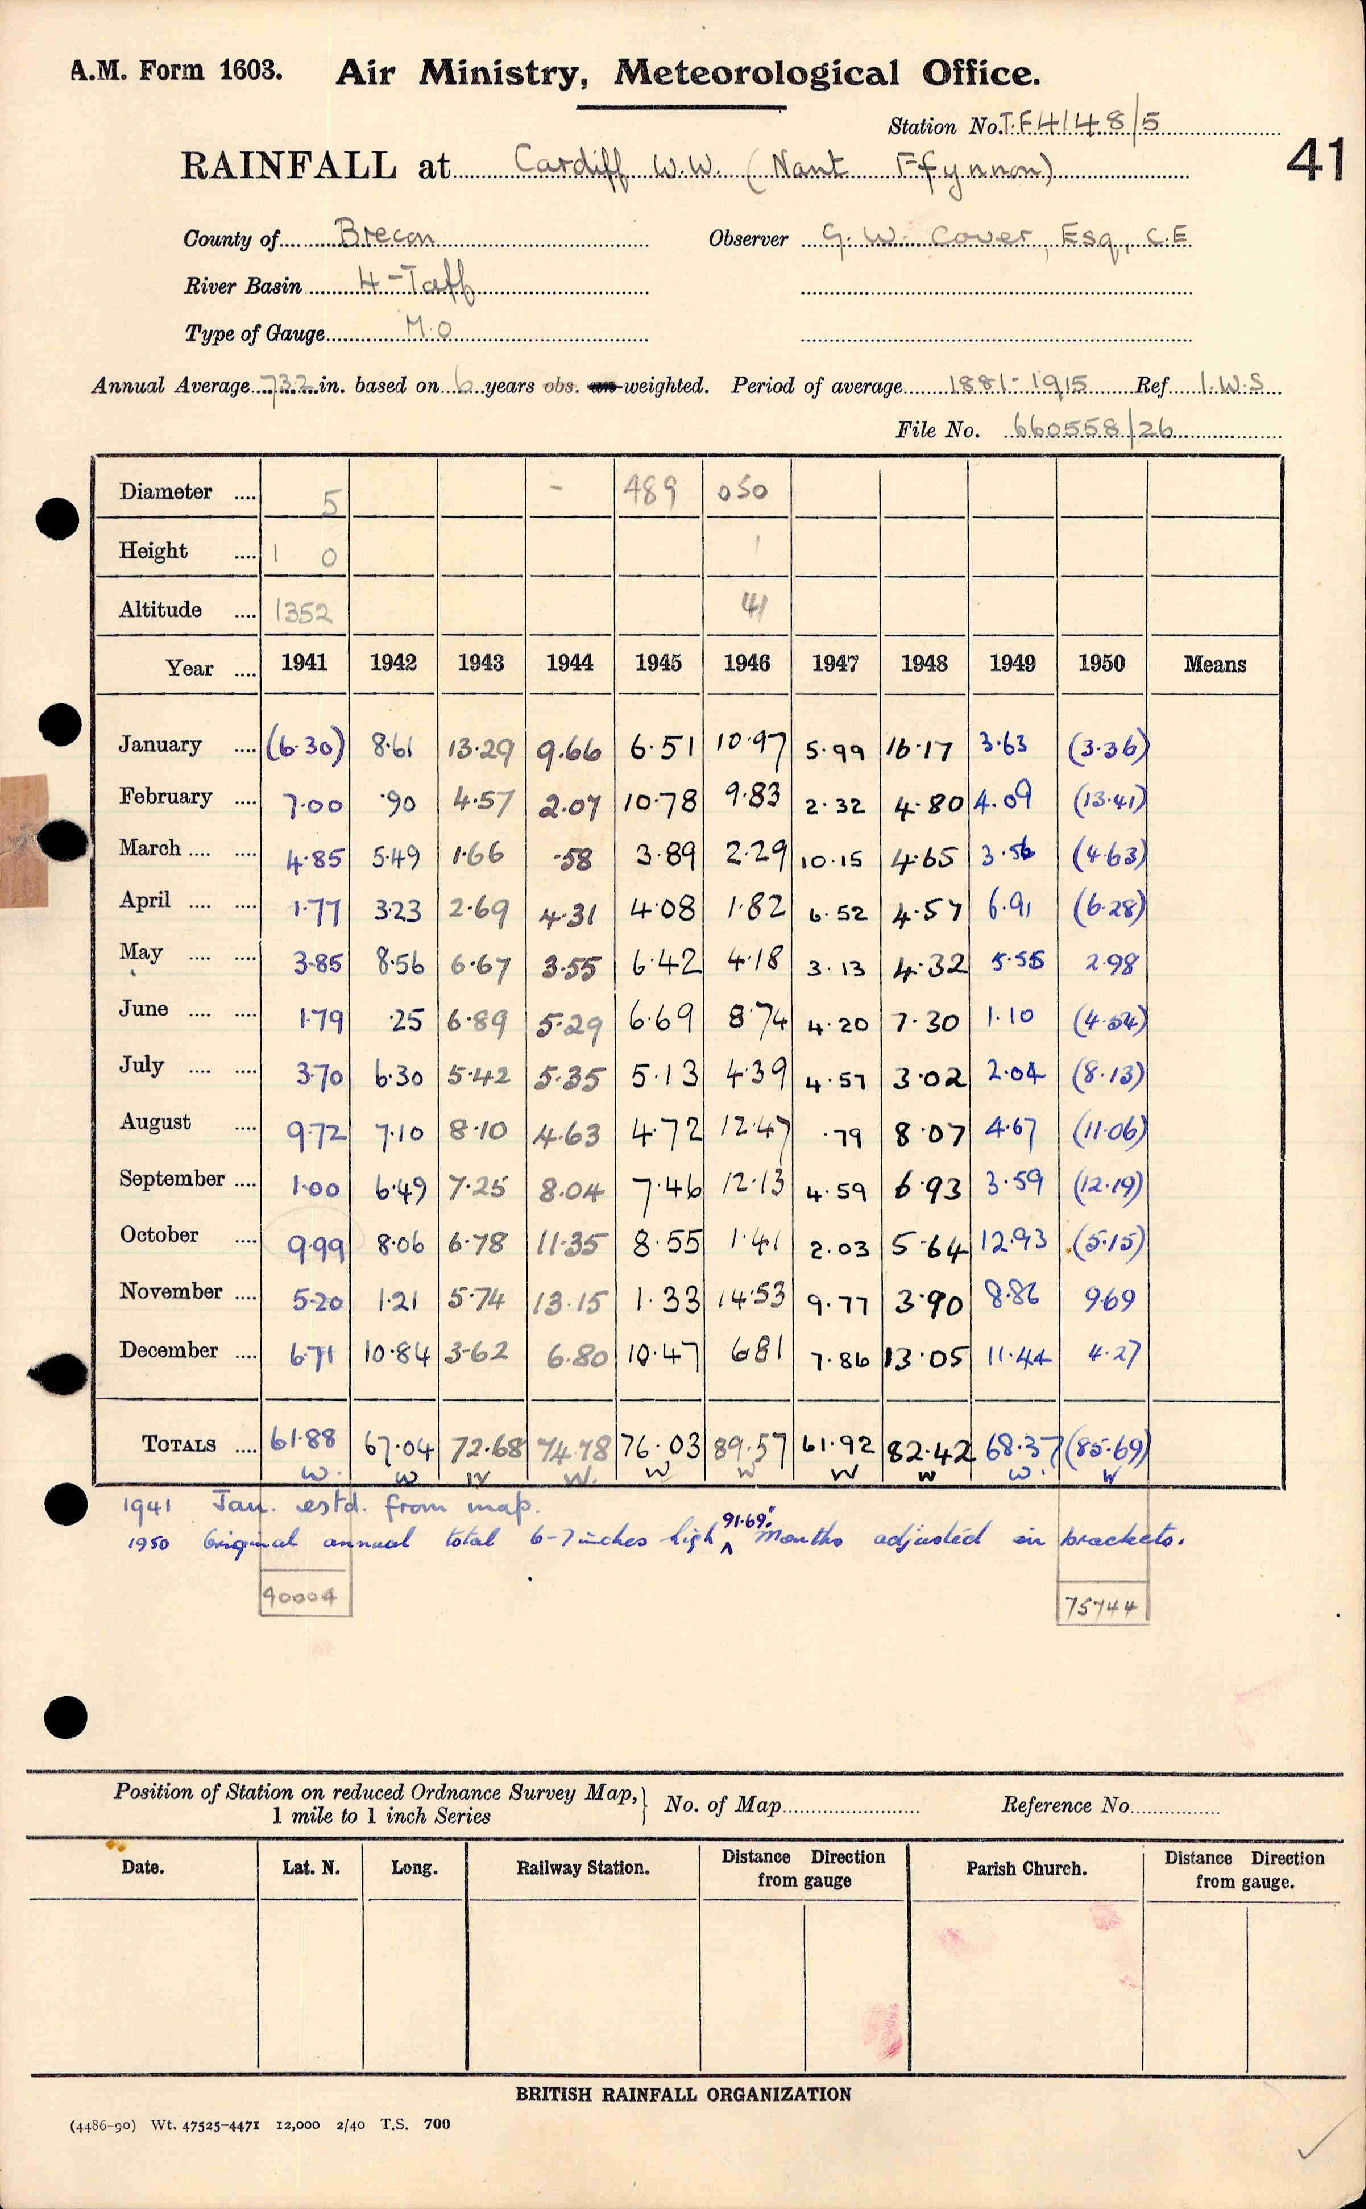 A.M. Form 1603. Air Ministry, Meteorological Office.
Station No. T.F.4148/5
41
RAINFALL at Cardiff W.W. (Nant Ffynnon)
County of Brecon Observer G. W. Cover, Esq., C.E
River Basin 4-Taff
Type of Gauge M.O
Annual Average 73.2 in. based on 6 years obs. weighted. Period of average 1881-1915 Ref I.W.S
File No. 660558/26
Diameter .... 5 - 489 050
Height .... 1 0 1
Altitude .... 1352 41
Year .... 1941 1942 1943 1944 1945 1946 1947 1948 1949 1950 Means
January .... (6.30) 8.61 13.29 9.66 6.51 10.97 5.99 16.17 3.63 (3.36)
February .... 7.00 .90 4.57 2.07 10.78 9.83 2.32 4.80 4.09 (13.41)
March .... .... 4.85 5.49 1.66 .58 3.89 2.29 10.15 4.65 3.56 (4.63)
April .... .... 1.77 3.23 2.69 4.31 4.08 1.82 6.52 4.57 6.91 (6.28)
May .... .... 3.85 8.56 6.67 3.55 6.42 4.18 3.13 4.32 5.55 2.98
June .... .... 1.79 .25 6.89 5.29 6.69 8.74 4.20 7.30 1.10 (4.54)
July .... .... 3.70 6.30 5.42 5.35 5.13 4.39 4.57 3.02 2.04 (8.13)
August .... 9.72 7.10 8.10 4.63 4.72 12.47 .79 8.07 4.67 (11.06)
September .... 1.00 6.49 7.25 8.04 7.46 12.13 4.59 6.93 3.59 (12.19)
October .... 9.99 8.06 6.78 11.35 8.55 1.41 2.03 5.64 12.93 (5.15)
November .... 5.20 1.21 5.74 13.15 1.33 14.53 9.77 3.90 8.86 9.69
December .... 6.71 10.84 3.62 6.80 10.47 6.81 7.86 13.05 11.44 4.27
TOTALS .... 61.88 67.04 72.68 74.78 76.03 89.57 61.92 82.42 68.37 (85.69)
W. W W W. W W W W W. W
1941 Jan. estd. from map.
1950 Original annual total 6-7 inches high 91.69. Months adjusted in brackets.
90004 75744
Position of Station on reduced Ordnance Survey Map, 1 mile to 1 inch Series No. of Map Reference No.
Date. Lat. N. Long. Railway Station. Distance Direction from gauge Parish Church. Distance Direction from gauge.
BRITISH RAINFALL ORGANIZATION
(4486-90) Wt. 47525-4471 12,000 2/40 T.S. 700